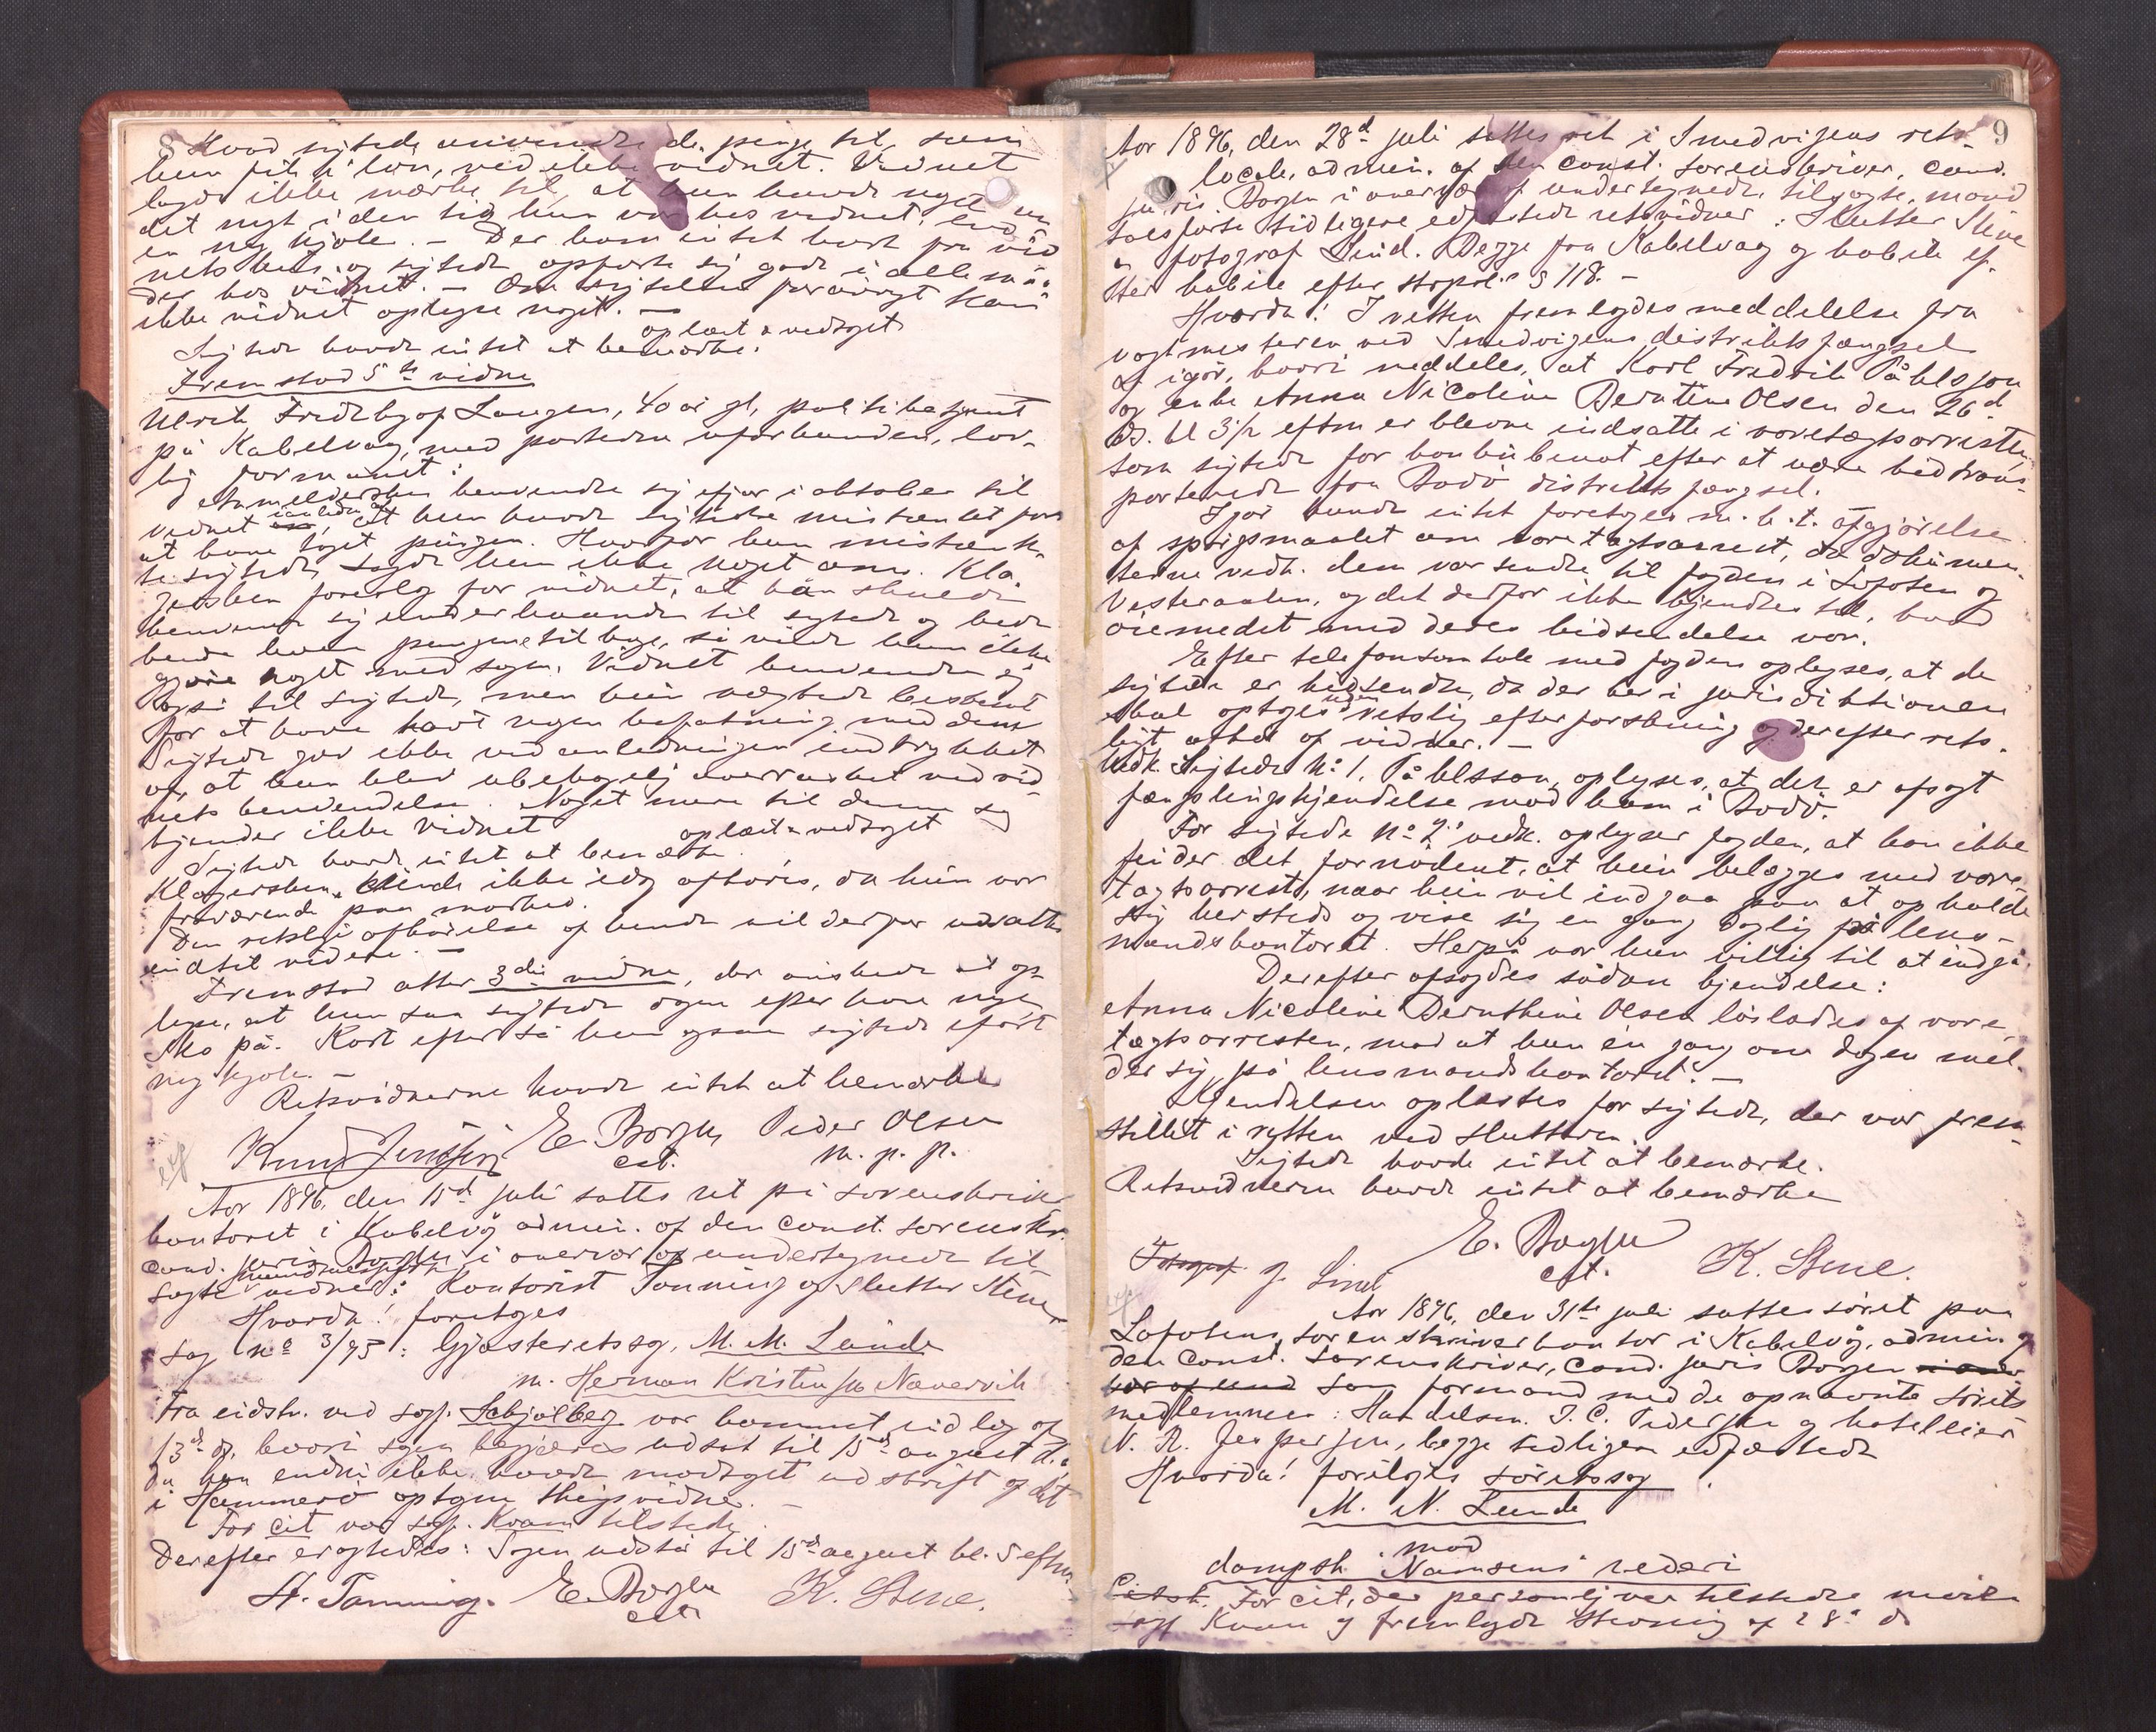 8
Hvad sigtede anvendte de penge til, som
hun fik i løn, ved ikke vidnet. Vidnet
lagde ikke mærke til, at hun havde noget
det nyt i den tid hun var hos vidnet,
en ny kjole. – Der kom intet bort fra vid
nets hus, og sigtede opførte sig godt i alle må-
der hos vidnet. – Om sigtelsen forøvrigt kan
ikke vidnet oplyse noget. –
oplæst & vedtaget
Sigtede havde intet at bemærke.
Fremstod 5te vidne
Ulrik Fredrik Langen, 40 år gl, politibetjent
på Kabelvåg, med parterne uforbunden, lov-
lig formanet:
Anmeldersken henvendte sig ifjor i oktober til
vidnet i anledn. af, at hun havde sigtede mistænkt for
at have taget pengene. Hvorfor hun mistænk-
te sigtede, sagde hun ikke noget om. Kla-
gersken foreslog for vidnet, at han skulde
henvende sig underhaanden til sigtede og bede
hende levere pengene tilbage, så vilde hun ikke
gjøre noget med sagen. Vidnet henvendte sig
også til sigtede, men hun nægtede bestemt
for at have havt nogen befatning med dem.
Sigtede gav ikke ved anledningen indtrykket
af, at hun blev ubehagelig overrasket ved vid
nets henvendelse. Noget mere til denne sag
kjender ikke vidnet
oplæst & vedtaget
Sigtede havde intet at bemærke.
Klagersken kunde ikke idag afhøres, da hun var
fraværende paa marked.
Den retslige afhørelse af hende vil derfor udsættes
indtil videre. –
Fremstod atter 3die vidne, der ønskede at op-
lyse, at hun saa sigtede ogsaa efter have nye
sko på. Kort efter så hun ogsaa sigtede iført
ny kjole. –
Retsvidnerne havde intet at bemærke
Knud Jentoft E. Bogen Peder Olsen
cst. m. p. p.
Aar 1896, den 15d juli sattes ret på sorenskriver
kontoret i Kabelvåg admin. af den const. sorenskr.
cand. juris Bogen i overvær af undertegnede til-
sagte vidner: Kontorist Tanning og Slutter Stene
Hvorda! foretoges
sag no 3/95: Gjæsteretssag, M. M. Lunde
m. Herman Kristensen Nævervik
Fra cidstn. ved sagf. Schjølberg var kommet indlæg af
13d ds, hvori sagen begjæres udsat til 15d august d.å.
da han endnu ikke havde modtaget udskrift af det
i Hammerø optagne thingsvidne. –
For cit var sagf. Kvam tilstede.
Derefter eragtedes: Sagen udstår til 15d august kl. 5 eftm.
H. Tanning. E. Bogen K. Stene.
cst
9
Aar 1896, den 28d juli sattes ret i Smedvigens rets-
locale, admin. af den const. sorenskriver, cand.
juris Bogen i overvær af undertegnede, tilsagte, mand
talsførte tidligere edfæstede retsvidner: Slutter Stene
& fotograf Lind. Begge fra Kabelvaag og habile ef-
ter habile efter strprl. § 118. –
Hvorda! I retten fremlagdes meddelelse fra
vagtmesteren ved Smedvigens distriktsfængsel
af igår, hvori meddeles, at Karl Fredrik Påhlsson
og enke Anna Nicoline Berntine Olsen den 26d
ds. kl 3½ eftm er blevne indsatte i varetægtsarresten
som sigtede for konkubinat efter at være hidtrans-
porterede fra Bodø distriktsfængsel.
Igår kunde intet foretages m. h. t. afgjørelse
af spørgsmaalet om varetægtsarrest, da dokumen-
terne vedk. dem var sendte til fogden i Lofoten og
Vesteraalen, og det derfor ikke kjendtes til, hvad
øiemedet med deres hidsendelse var.
Efter telefonsamtale med fogden oplyses, at de
sigtede er hidsendte, da der her i jurisdiktionen
skal optages udenretslig efterforskning og derefter rets-
ligt afhør af vidner. –
Vedk. Sigtede No 1. Påhlsson, oplyses, at det er afsagt
fængslingskjendelse mod ham i Bodø.
For sigtede No 2's vedk. oplyser fogden, at han ikke
finder det fornødent, at hun belægges med vare-
tægtsarrest, naar hun vil indgaa paa at opholde
sig hersteds og vise sig en gang daglig på lens-
mandskontoret. Herpå var hun villig til at indgå.
Derefter afsagdes sådan kjendelse:
Anna Nicoline Bernthine Olsen løslades af vare-
tægtsarresten, mod at hun én gang om dagen mel-
der sig på lensmandskontoret. –
Kjendelsen oplæstes for sigtede, der var frem-
stillet i retten ved slutteren.
Sigtede havde intet at bemærke.
Retsvidnerne havde intet at bemærke
E. Bogen
cst.
Fotograf J. Lind K. Stene.
Aar 1896, den 31te juli sattes søret paa
Lofotens sorenskriverkontor i Kabelvåg, admin. af
den const. sorenskriver, cand. juris Bogen i over
vær af und som formand med de opnævnte sørets
medlemmer: Handelsm. J. C. Pedersen og hotelleier
N. R. Jespersen, begge tidligere edfæstede
Hvorda! foretoges søretssag
M. N. Lunde
mod
dampsk. Namsens rederi
Citst. For cit, der personlig var tilstede mødte
sagf Kvam og fremlagde stevning af 28d ds